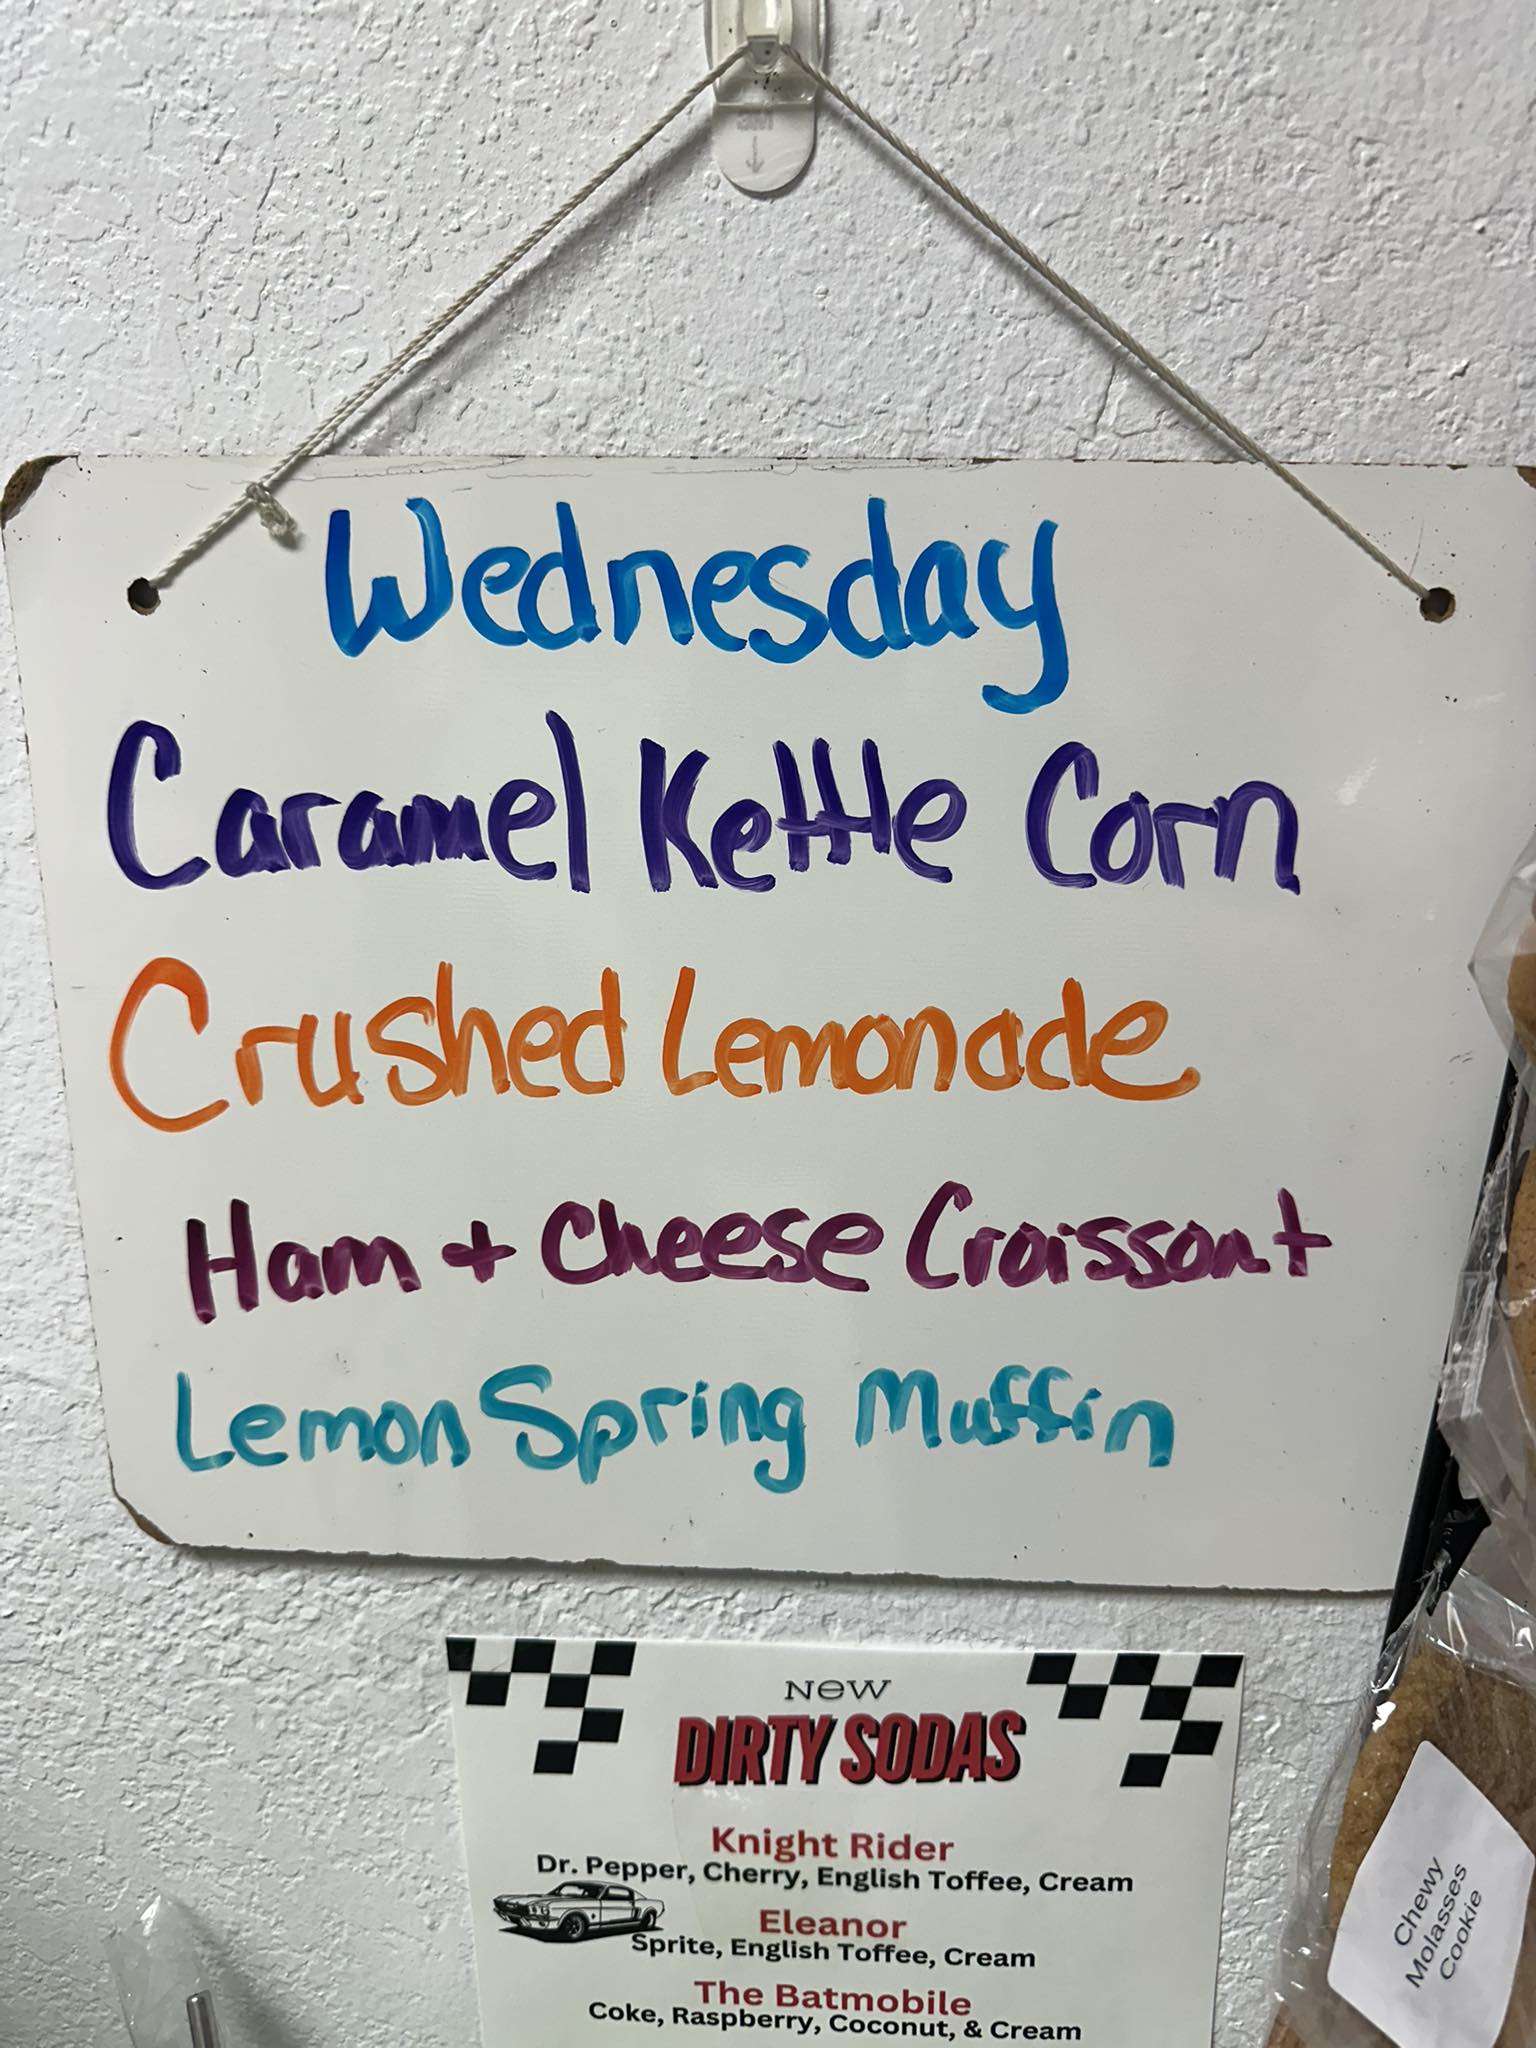 Wednesday
Caramel Kettle Corn
Crushed Lemonade
Ham + Cheese Croissant
Lemon Spring Muffin
NEW
DIRTY SODAS
Knight Rider
Dr. Pepper, Cherry, English Toffee, Cream
Eleanor
Sprite, English Toffee, Cream
The Batmobile
Coke, Raspberry, Coconut, & Cream
Chewy
Molasses
Cookie